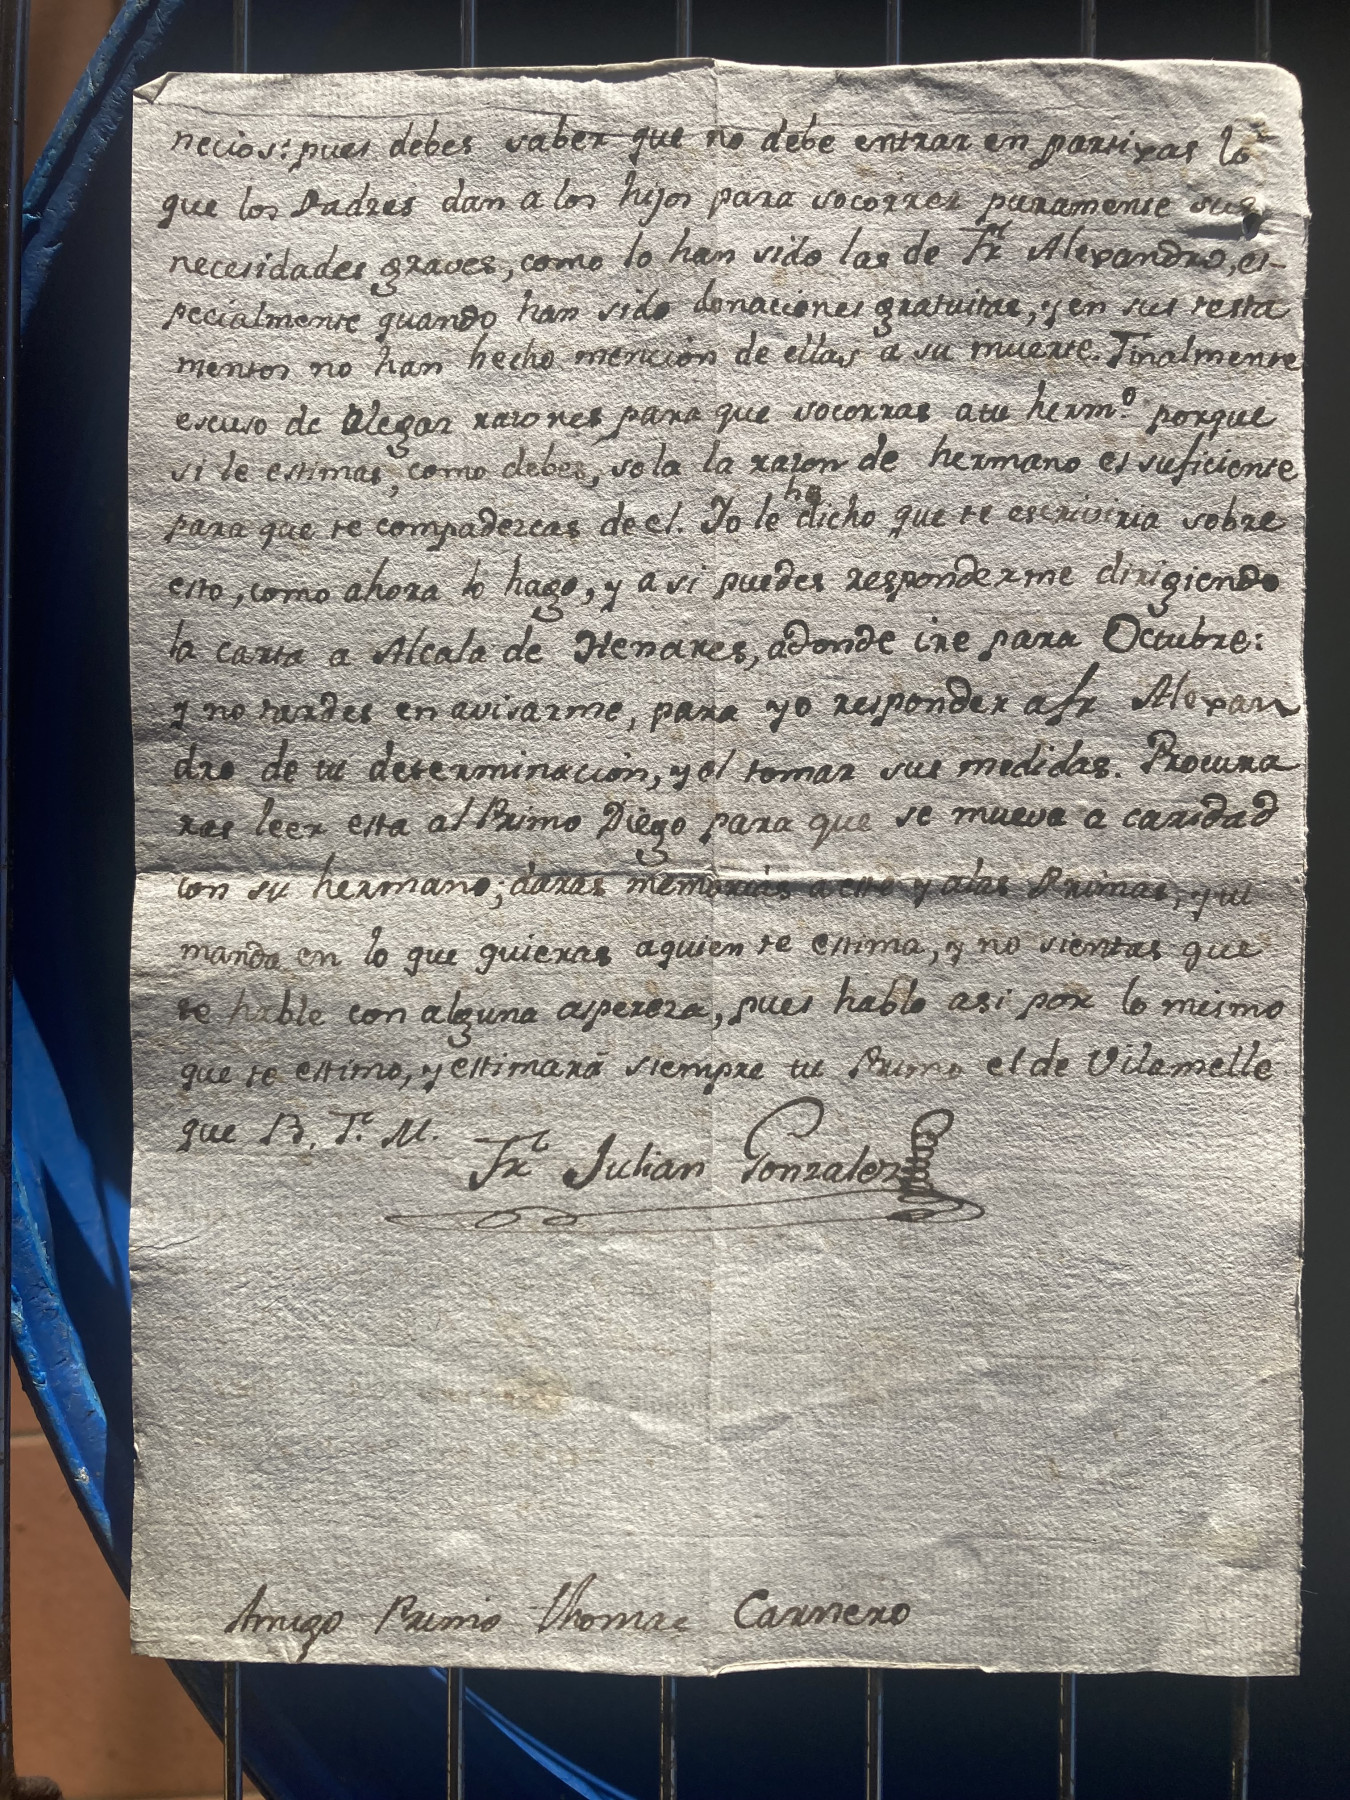 necios: pues debes saber que no debe entrar en partixas lo
que los Padres dan a los hijos para socorrer puramente sus
necesidades graves, como lo han sido las de Fr. Alexandro, es-
pecialmente quando han sido donaciones gratuitas, y en sus testa
mentos no han hecho mencion de ellas a su muerte. Finalmente
escuso de Alegar razones para que socorras a tu hermo. porque
si le estimas, como debes, sola la razon de hermano es suficiente
para que te compadezcas de el. Yo le ha dicho que te escriviria sobre
esto, como ahora lo hago, y asi puedes responderme dirigiendo
la carta a Alcala de Henares, adonde ire para Octubre:
y no tardes en avisarme, para yo responder a fr Alexan
dro de tu determinacion, y el tomar sus medidas. Procura
ras leer esta al Primo Diego para que se mueva a caridad
con su hermano; daras memorias a este y a las Primas, y tu
manda en lo que quieras a quien te estima, y no sientas que
te hable con alguna aspereza, pues hablo asi por lo mismo
que te estimo, y estimará siempre tu Primo el de Vilamelle
que B. Ts. M.
Fr. Julian Gonzalez
Amigo Primo Thomas Carnero